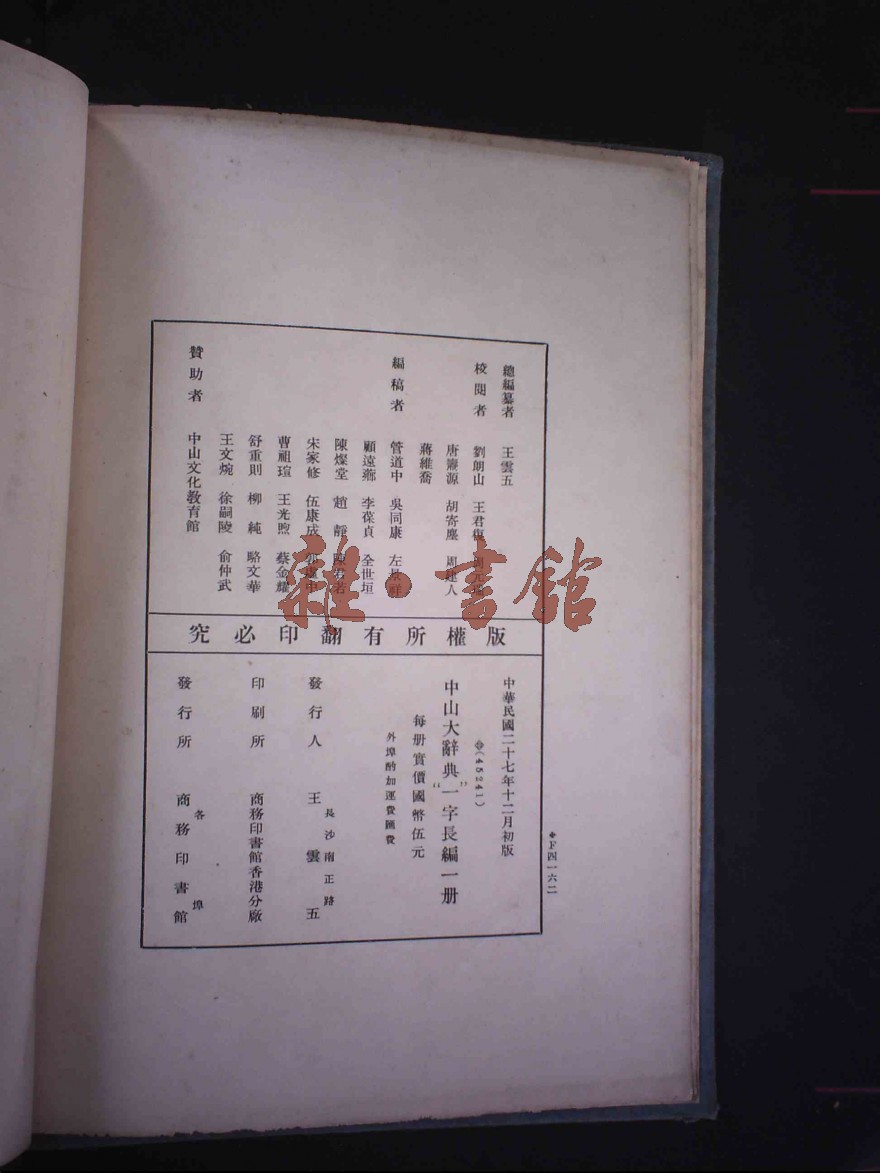 總編纂者 王雲五
校閱者 劉朗山 王君復
唐 源 胡寄塵 周建人
蔣維喬
編稿者 管道中 吳同康 左景祥
顧遠薌 李葆貞 全世垣
陳燦堂 趙靜 陳 若
宋家修 伍康成 中
曹祖瑄 王光煦 蔡金耀
舒重則 柳純 駱文華
王文婉 徐嗣陵 俞仲武
贊助者 中山文化教育館
版權所有翻印必究
◆F四一六二
中華民國二十七年十二月初版
(45241)
中山大辭典“一”字長編一册
每册實價國幣伍元
外埠酌加運費匯費
長沙南正路
發行人 王雲五
印刷所 商務印書館香港分廠
各埠
發行所 商務印書館
雜·書館